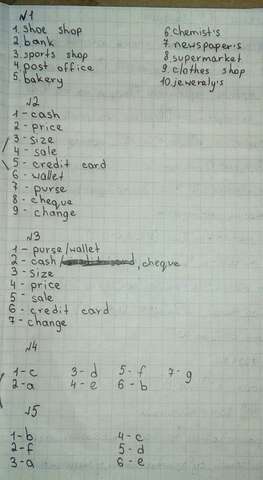 №1
1. shoe shop
2. bank
3. sports shop
4. post office
5. bakery
6. chemist's
7. newspaper's
8. supermarket
9. clothes shop
10. jewerely's
№2
1 - cash
2 - price
3 - size
4 - sale
5 - credit card
6 - wallet
7 - purse
8 - cheque
9 - change
№3
1 - purse/wallet
2 - cash/, cheque
3 - size
4 - price
5 - sale
6 - credit card
7 - change
№4
1-c 3-d 5-f 7-g
2-a 4-e 6-b
№5
1-b 4-c
2-f 5-d
3-a 6-e